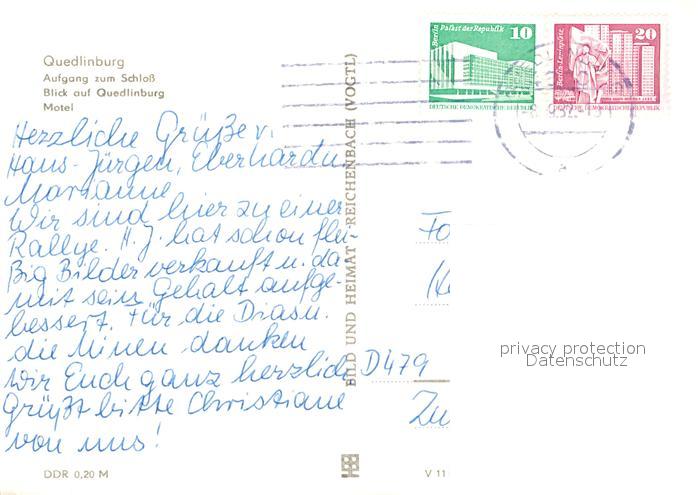 Quedlinburg
Aufgang zum Schloß
Blick auf Quedlinburg
Motel
Herzliche Grüße v.
Hans-Jürgen, Eberhard u.
Marianne
Wir sind hier zu einer
Rallye. H. J. hat schon flei-
ßig Bilder verkauft u. da
mit sein Gehalt aufge-
bessert. Für die Dias u.
die Minen danken
wir Euch ganz herzlich
Grüßt bitte Christiane
von uns!
DDR 0,20 M
BILD UND HEIMAT REICHENBACH (VOGTL)
Berlin Palast der Republik
10
DEUTSCHE DEMOKRATISCHE REPUBLIK
Berlin Leninplatz
20
DEUTSCHE DEMOKRATISCHE REPUBLIK
D479
Zu
V 11
privacy protection
Datenschutz